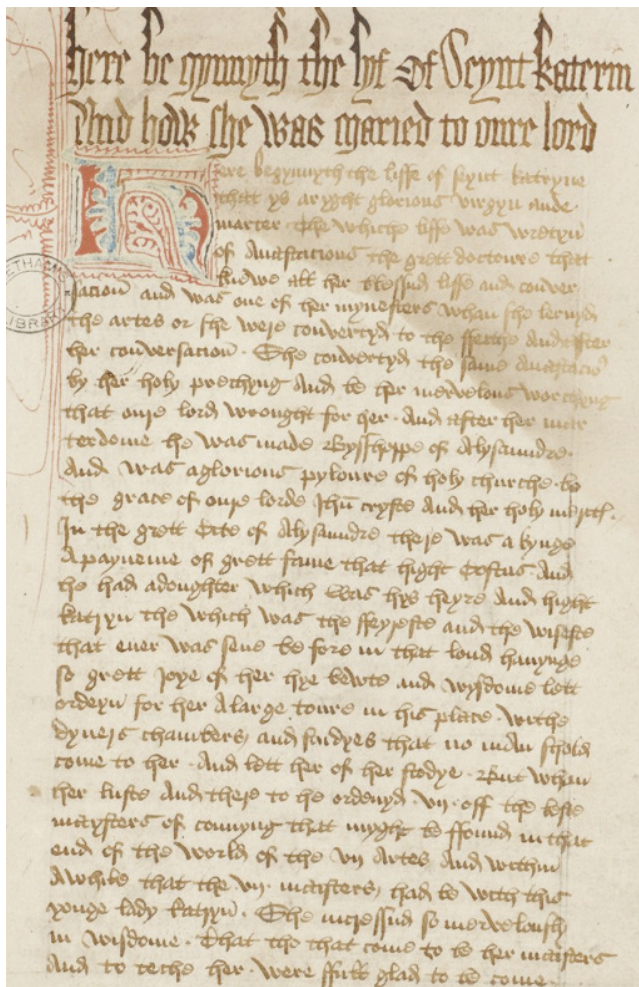 here be gynnyth the lyf Of Seynt Katerin
And how she was maried to oure lord
Here begynnyth the liffe of seynt Katryne
that ys a ryght glorious virgyn and
marter the whiche liffe was wretyn
of Anastacious the grett doctoure that
knewe all her blessud liffe and conver
sacion and was one of her mynesters whan she lernyd
the artes or she were convertyd to the ffeithe And after
her conversacion. She convertyd the same Anastacius
by her holy prechyng And be her mervelous worchyng
that oure lord wrought for her. And after her mar
terdome he was made Bysshoppe of Alysaundre.
And was a glorious pyloure of holy churche. by
the grace of oure lorde Jhu cryste And her holy meritt.
In the grett Cite of Alysaundre there was a kynge
A payneme of grett fame that hight Costus. And
he had a doughter which was hys heyre And hight
Katryn the which was the ffeyreste and the wiseste
that ever was sene be fore in that lond havynge
so grett Joye of her hye bewte and wysdome lett
ordeyn for her A large toure in his place. withe
dyvers chambers and stodyes that no man schold
come to her. And lett her of her stodye. But whan
her luste And there to he ordenyd. vii. off the beste
maysters of connyng that myght be ffound in that
end of the world of the vii Artes And within
A while that the. vii. maisters had be with this
yonge lady Katryn. She incressud so mervelously
in wisdome. That tho that come to be her maisters
And to teche her. were ffull glad to be come
ETHAM
LIBRARY